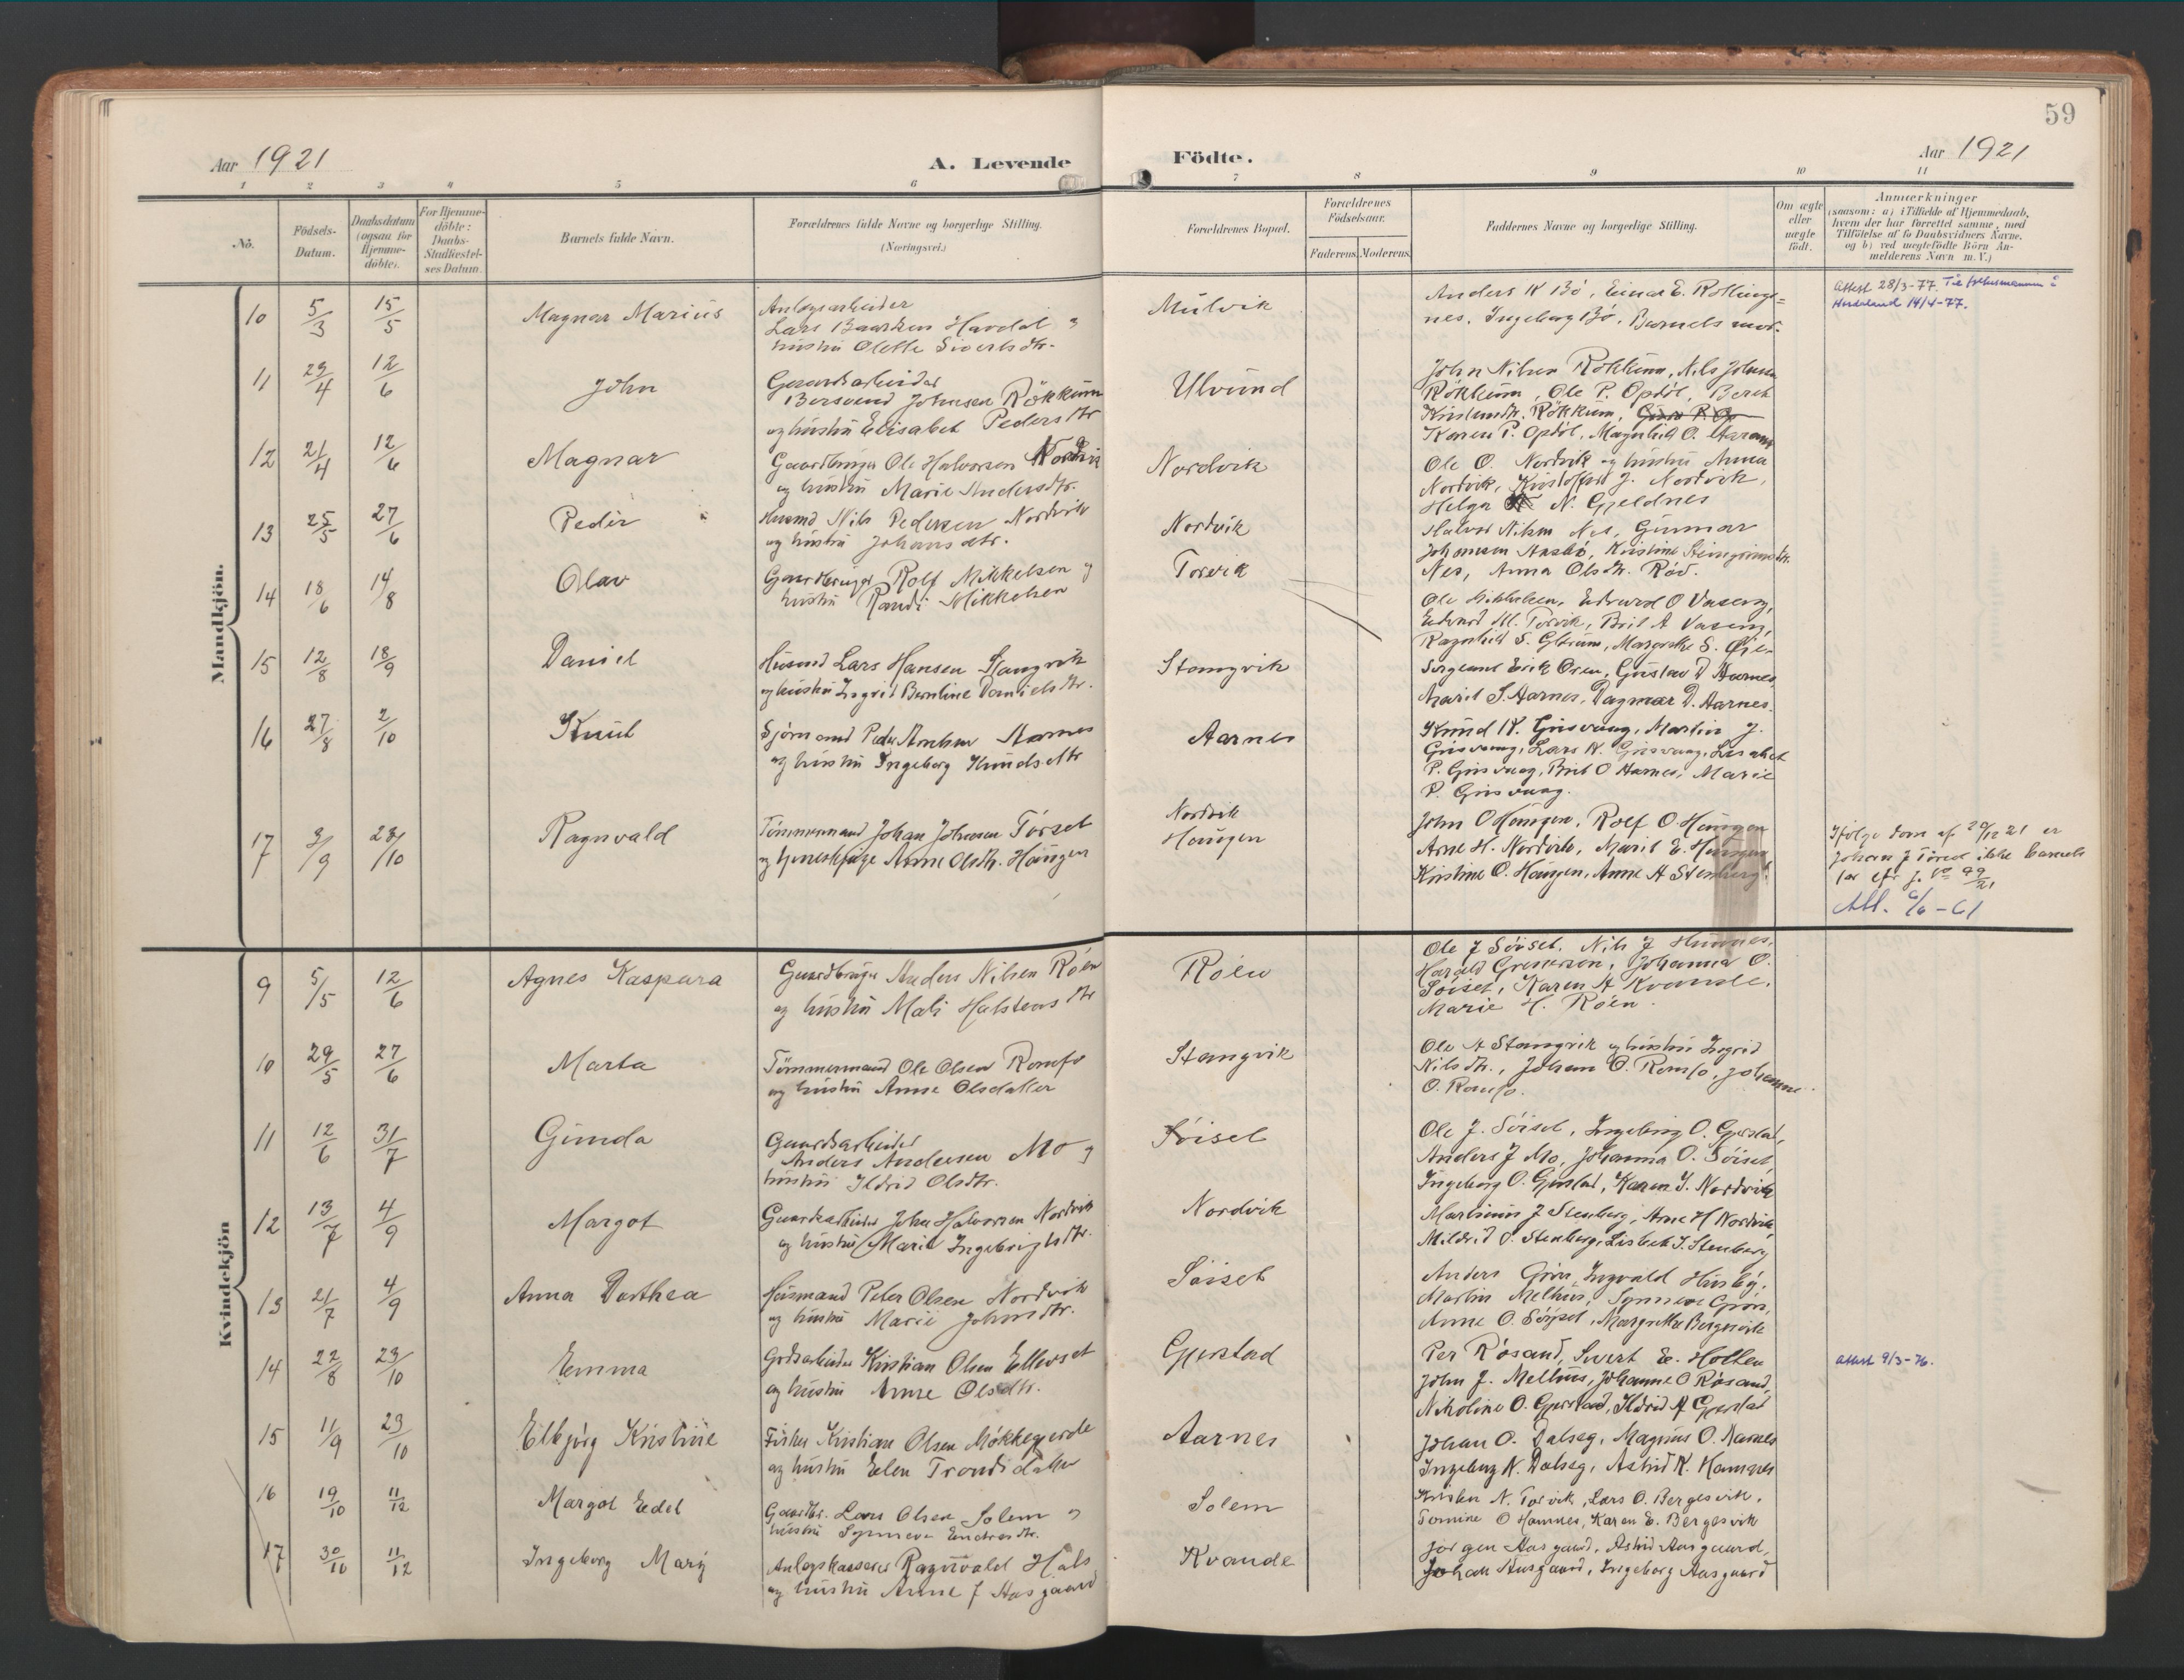 59
Aar 1921
A. Levende
Födte.
Aar 1921
1 2 3 4 5 6 7 8 9 10 11
No.
Födsels-
Datum.
Daabsdatum
(ogsaa for
Hjemme-
döbte).
For Hjemme-
döbte:
Daabs-
Stadfæstel-
ses Datum.
Barnets fulde Navn.
Forældrenes fulde Navne og borgerlige Stilling.
(Næringsvei.)
Forældrenes Bopæl.
Forældrenes
Födselsaar.
Faderens.
Moderens.
Faddernes Navne og borgerlige Stilling.
Om ægte
eller
uægte
födt.
Anmærkninger
(saasom: a) i Tilfælde af Hjemmedaab,
hvem der har forrettet samme, med
Tilföielse af to Daabsvidners Navne,
og b) ved uægtefödte Börn An-
melderens Navn m. V.)
Mandkjön.
10 5/3 15/5 Magnar Marius
Anlægsarbeider
Lars Havdal og
hustru Olette Sivertsdtr.
Mulvik
Anders K Bö, Einar E.
nes. Ingeborg Bö. Barnets mor.
Attest 28/3-77.
Hordaland 14/4-77.
11 29/4 12/6 John
Gaardsarbeider
Bersvend Johnsen Rökkum
og hustru Elisabet Pedersdtr
Ulvund
John Nilsen Rökkum, Nils Johnsen
Rökkum, Ole P. Opdöl, Berit
Rökkum,
Karen P. Opdöl, Magnhild O.
12 21/4 12/6 Magnar
Gaardbruger Ole Halvorsen Nordvik
og hustru Marie Andersdtr.
Nordvik
Ole O. Nordvik og hustru Anna
Nordvik, Kristoffer J. Nordvik,
Helga N. Gjeldnes
13 25/5 27/6 Peder
Husmd Nils Pedersen Nordvik
og hustru Johansdtr.
Nordvik
Halvor Nilsen Nes, Gunnar
Johansen, Kristine Steingrimsdtr.
Nes, Anna Olsdtr. Röd.
14 18/6 14/8 Olav
Gaardbruger Rolf Mikkelsen og
hustru Randi Mikkelsen
Torvik
Ole Mikkelsen, Edvard O Vaseng,
Edvard M. Torvik, Brit A Vaseng,
Ragnhild S. Glærum, Margrethe S. Öie.
15 12/8 18/9 Daniel
Husmd Lars Hansen Stangvik
og hustru Ingrid Berntine Danielsdtr.
Stangvik
Sergeant Erik Oren, Gustav D Aarnes,
Marit S. Aarnes, Dagmar D. Aarnes.
16 27/8 2/10 Knut
Sjömand Peder Aarnes
og hustru Ingeborg Knudsdtr
Aarnes
Knud K. Grisvaag, Martin J.
Grisvaag, Lars K. Grisvaag, Lisabet
P. Grisvaag, Brit O Aarnes, Marie
P. Grisvaag.
17 3/9 23/10 Ragnvald
Tömmermand Johan Johnsen Törset
og Anne Olsdtr. Haugen
Nordvik
Haugen
John O Haugen, Rolf O. Haugen
Arne H. Nordvik, Marit E. Haugen
Kristine O. Haugen, Anne A Stenberg.
Ifölge dom af 20/12 21 er
Johan J Törset ikke barnets
far
Att. 6/6-61
Kvindekjön
9 5/5 12/6 Agnes Kaspara
Gaardbruger Anders Nilsen Röen
og hustru Mali Halstensdtr
Röen
Ole J Söiset, Nils J
Harald, Johanna O.
Söiset, Karen A Kvande,
Marie H. Röen.
10 29/5 27/6 Marta
Tömmermand Ole Olsen Romfo
og hustru Anne Olsdatter
Stangvik
Ole A Stangvik og hustru Ingrid
Nilsdtr., Johan O. Romfo, Johanne
O. Romfo.
11 12/6 31/7 Gunda
Gaardsarbeider
Anders Andersen Mo og
hustru Ildrid Olsdtr.
Söiset
Ole J. Söiset, Ingeborg O. Gjerstad,
Anders J Mo, Johanna O. Söiset
Ingeborg O. Gjerstad, Karen I. Nordvik
12 13/7 4/9 Margot
Gaardsarbeider Johan Halvorsen Nordvik
og hustru Marit Ingebrigtsdtr.
Nordvik
Martinus J Stenberg, Arne H Nordvik
Mildrid O. Stenberg, Lisbet I. Stenberg
13 21/7 4/9 Anna Dorthea
Husmand Peter Olsen Nordvik
og hustru Marie Johnsdtr.
Söiset
Anders Grön, Ingvald Husby,
Martin Melhus, Synnöve Grön,
Anne O. Söiset, Margrethe Bergesvik
14 22/8 23/10 Emma
Gdsarbeider Kristian Olsen Ellevset
og hustru Anne Olsdtr.
Gjerstad
Per Rösand, Sivert E. Holten
John J. Melhus, Johanne O Rösand,
Nikoline O. Gjerstad, Ildrid A Gjerstad
Attest 9/3-76.
15 11/9 23/10 Elbjörg Kristine
Fisker Kristian Olsen Mökkegjerde
og hustru Elen Trondsdatter
Aarnes
Johan O. Dalseg, Magnus O. Aarnes
Ingeborg N. Dalseg, Astrid K. Hamnes
16 19/10 11/12 Margot Edel
Gaardbr. Lars Olsen Solem og
hustru Synneva Endresdtr.
Solem
Kristen N. Torvik, Lars O. Bergesvik,
Tomine O Hamnes, Karen E. Bergesvik
17 30/10 11/12 Ingeborg Mary
Anlægskasserer Ragnvald Hals
og hustru Anne J Aasgaard
Kvande
Jörgen Aasgaard, Astrid Aasgaard,
Johan Aasgaard, Ingeborg Aasgaard